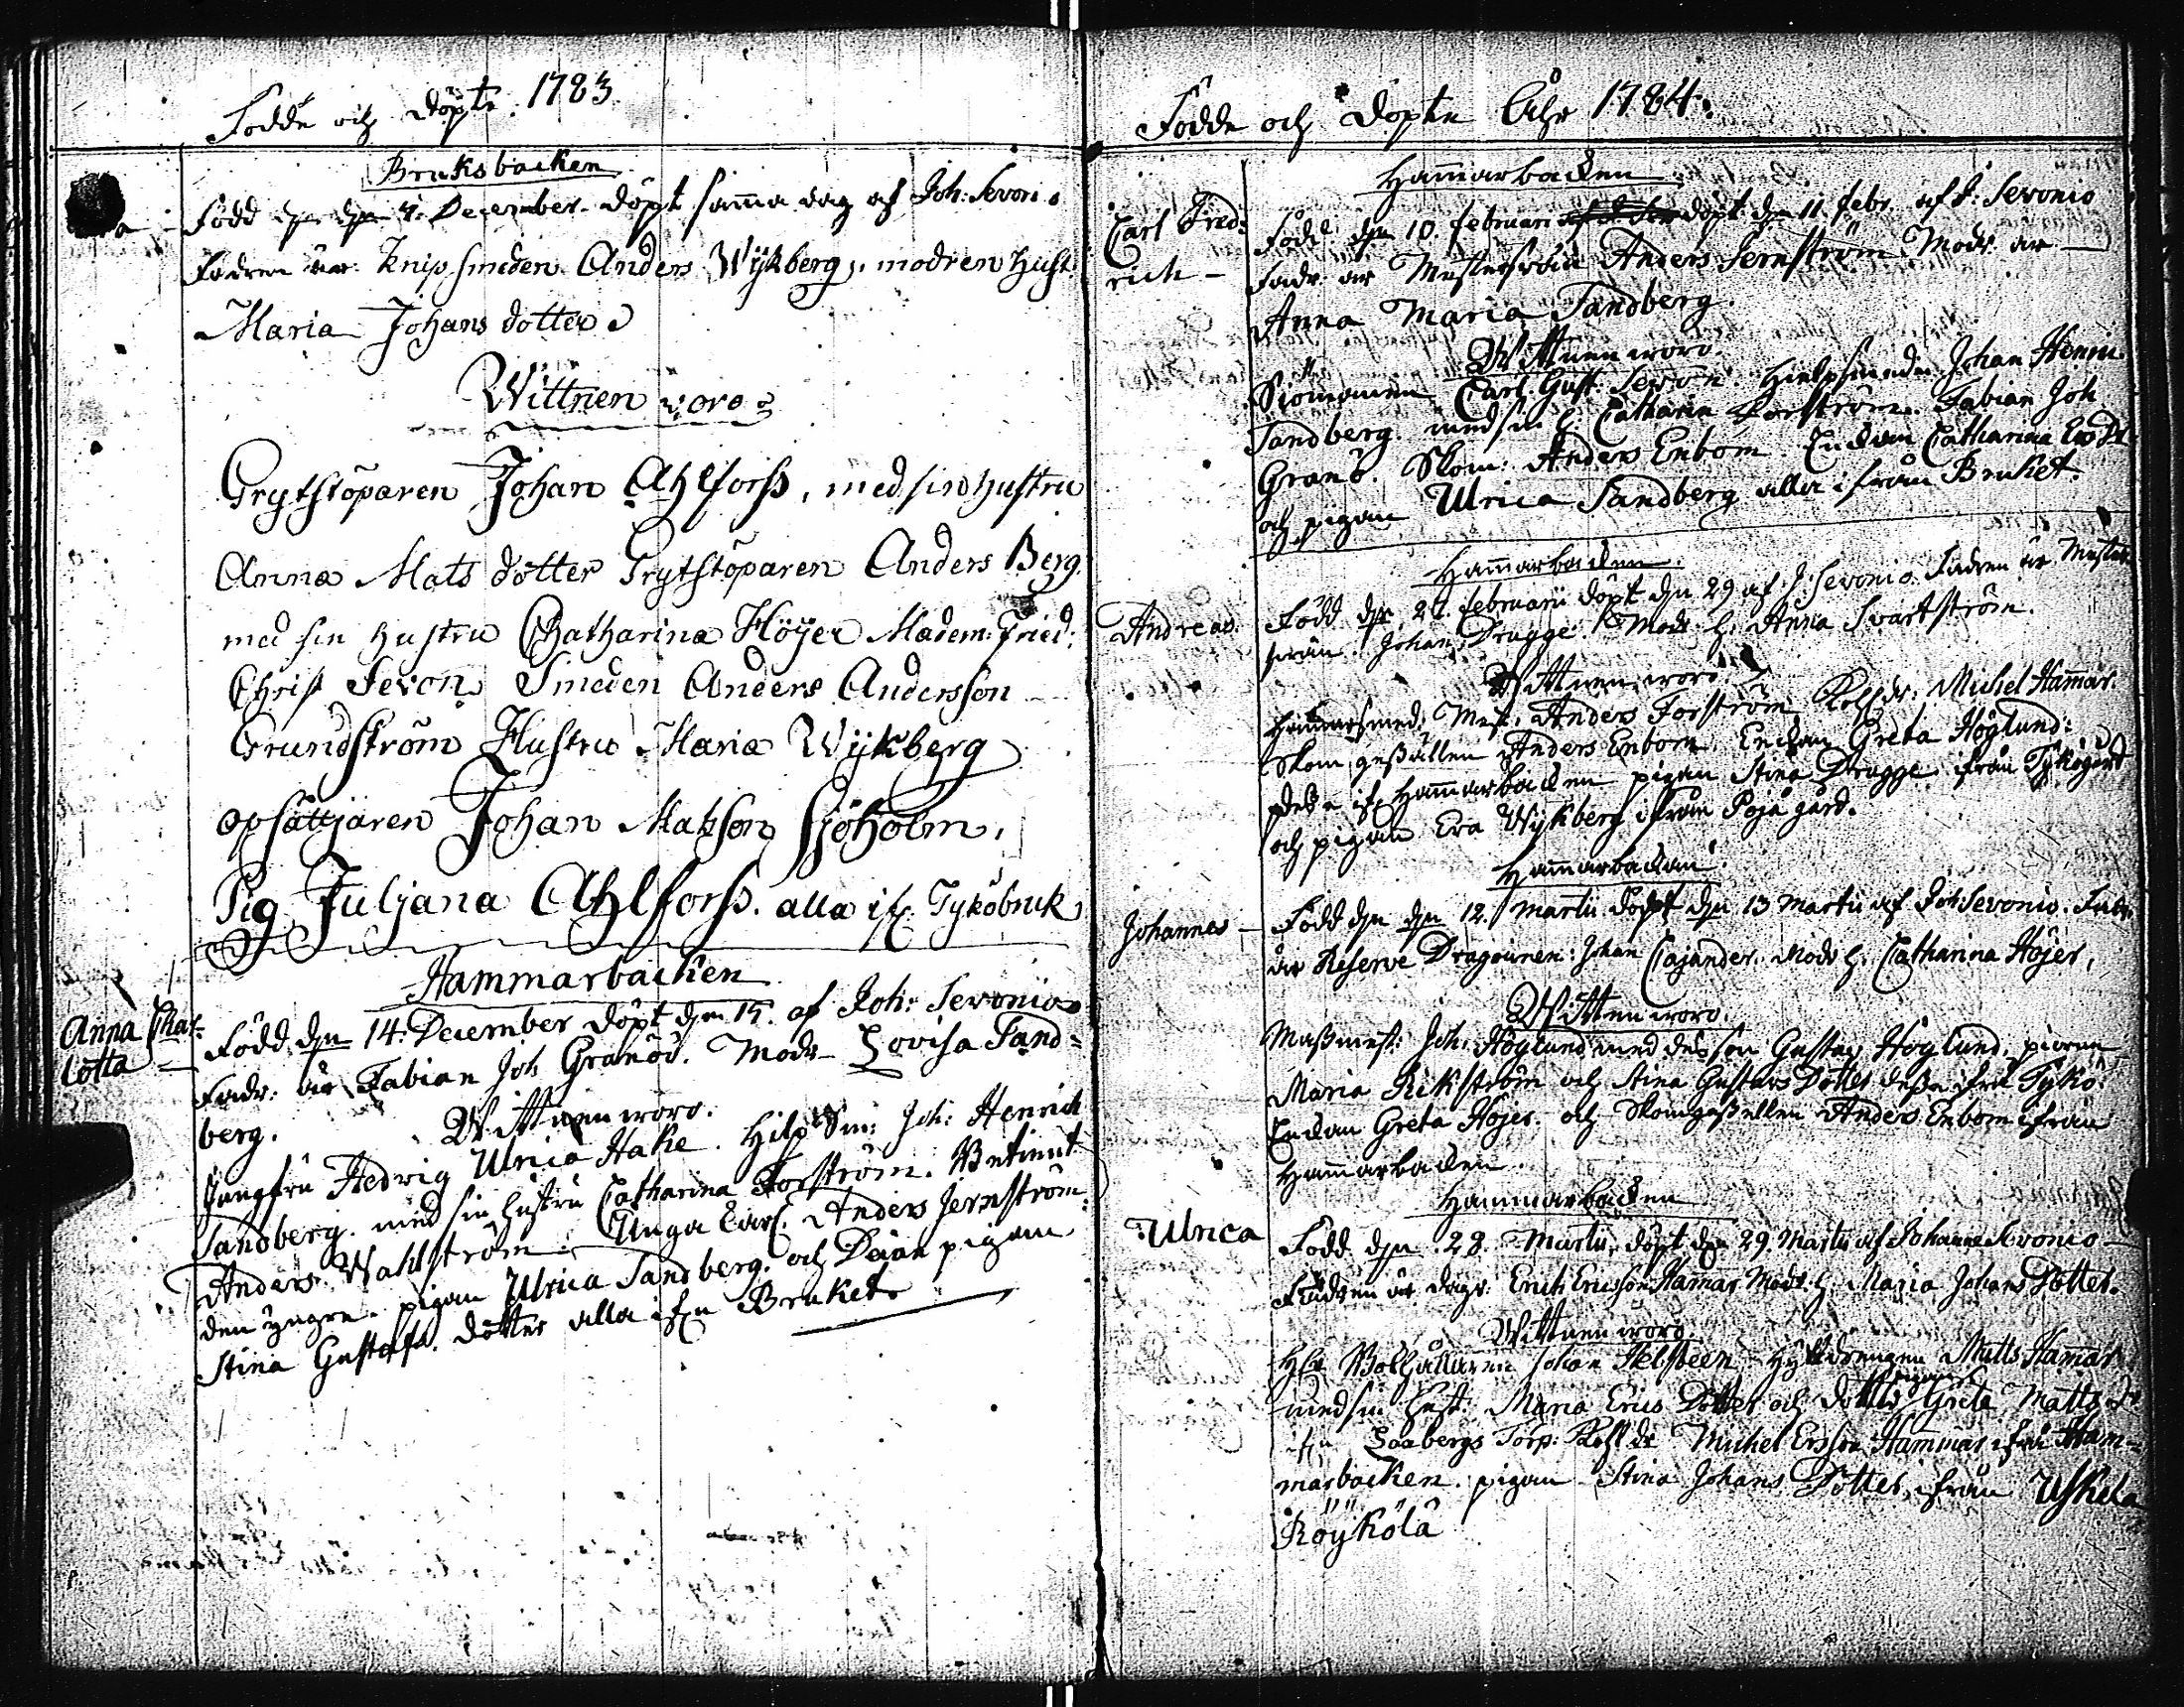 Födde och döpte 1783
Bruksbacken
Född den 4. December döpt samma dag af Joh: Sevonio
Fadren är Knipsmeden Anders Wijkberg, modren Hust
Maria Johans dotter
Wittnen woro
Grytstöparen Johan Ahlforss, med sin hustru
Anna Mats dotter Grytstöparen Anders Berg
med sin hustru Chatharina Höijer Madem: Fried:
Christ Sevon Smeden Anders Andersson
Grundström Hustru Maria Wijkberg
opsättjaren Johan Matsson Sjöholm,
Pig Juljana Ahlforss. alla ifr. Tykö bruk
Hammarbacken
Anna Char-
lotta
Född den 14. December döpt den 15. af Joh: Sevonio
Fadr: är Fabian Joh Granöö. Modr Lovisa Sand-
berg.
Wittnen woro.
Jungfru Hedvig Ulrica Hake. Hilp Sm: Joh: Henrich
Sandberg med sin hustru Catharina Forström.
Anders Wahlström. Unga Carl Anders Jernström
den yngre. pigan Ulrica Sandberg. och Deian pigan
Stina Gustafs. dotter alla ifrn Bruket
Födde och döpte Åhr 1784.
Hammarbacken
Carl Fred:
rich
Född den 10. februari döpt den 11 febr. af J: Sevonio
Fadr. är Mestersvän Anders Jernström Modr. är
Anna Maria Sandberg.
Wittnen woro.
Carl Gust. Sevon. Hielpsmeden Johan Henric
Sandberg med sin h. Catharin Forström. Fabian Joh
Granö. Skom: Anders Enbom Enckan Catharina
och pigan Ulrica Sandberg alla ifrån Bruket.
Hammarbacken.
Andreas.
Född den februarii döpt den 29 af J: Sevonio Fadren är Mester
svän. Johan Drugge. Modr h. Anna Svartström.
Wittnen woro.
Hammarsmed: Mest. Anders Forström Michel Hammar.
Skom gesällen Anders Enbom. Enckan Greta Höglund:
desse if. Hammarbacken pigan Stina Drugge ifrån Tykögård
och pigan Eva Wijkberg ifrån Poja gård.
Hammarbackan.
Johannes
Född den 12. Martii döpt den 13 Martii af Joh: Sevonio. Fadr.
är Reserve Dragounen: Johan Cajander. Modr h. Catharina Höjer,
Wittnen woro.
Masmest: Joh: Höglund med dess son Gustav Höglund, pigorne
Maria Rikström och Stina Gustavs Dotter dessa ifrå Tykö.
Enckan Greta Höjer. och Skomgesellen Anders Enbom ifrån
Hammarbacken.
Hammarbacken
Ulrica
Född den 28. Martii, döpt den 29. Martii af Johanne Sevonio
Fadren är dagv. Erich Ericsson Hammar Modr. h. Maria Johans Dotter.
Wittnen woro.
Bokhållaren Johan Helsteen, Hyttdrengen Matts Hammar
med sin hust. Maria Erics Dotter och dotter pigan Greta Matts dr
ifrn Laabergs Torp: Kohldr Michel Ersson Hammar ifrån Ham-
marbacken. pigan Stina Johans Dotter, ifrån Uskela
Röyköla